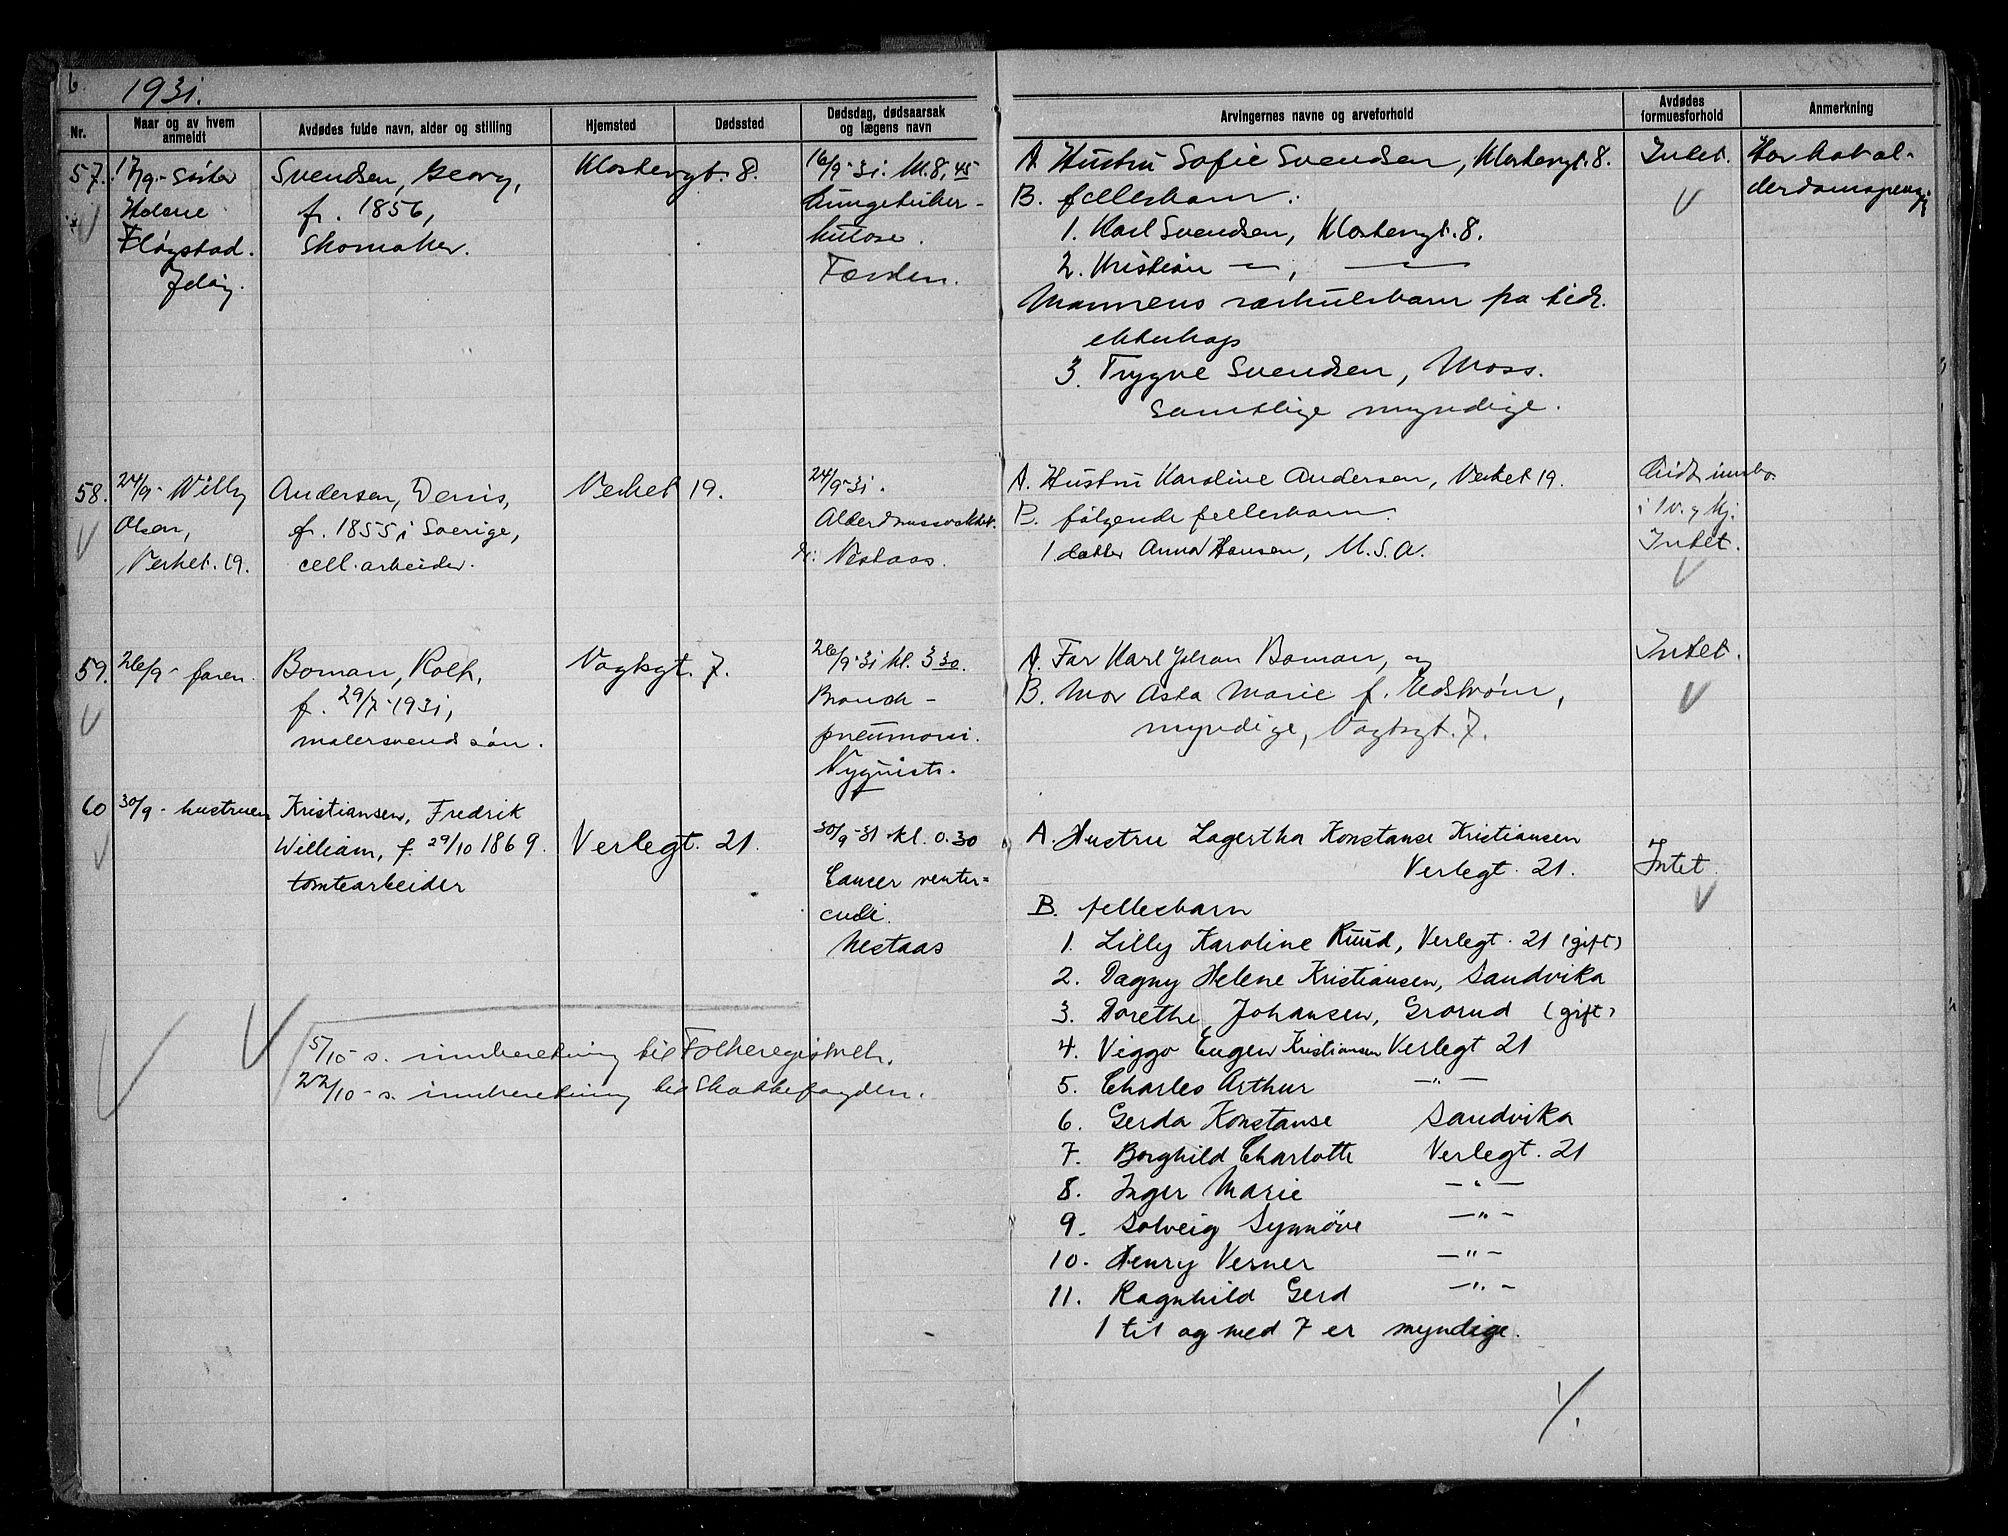 6.
1931.
Nr.
Naar og av hvem anmeldt
Avdødes fulde navn, alder og stilling
Hjemsted
Dødssted
Dødsdag, dødsaarsak og lægens navn
Arvingernes navne og arveforhold
Avdødes formuesforhold
Anmerkning
57. 17/9 - Søster
Helene
Fløgstad.
Jeløy.
Svendsen, Georg,
f. 1856,
Skomaker.
Klostergt. 8.
16/9-31. kl. 8,45
Lungetuber-
kulose.
Førden.
A. Hustru Sofie Svendsen, Klostergt. 8.
B. fellesbarn:
1. Karl Svendsen, Klostergt. 8.
2. Kristian — " —, — " —
Mannens særkulsbarn fra tidl.
ekteskap
3. Trygve Svendsen, Moss.
Samtlige myndige.
Intet.
Har hat al-
derdomspeng.
58. 24/9 - Willy
Olsen,
Verket. 19.
Andersen, Denis,
f. 1855 i Sverige,
cell. arbeider.
Verket 19.
24/9-31.
Alderdomssvakhet.
Dr: Nestaas.
A. Hustru Karoline Andersen, Verket 19.
B. følgende fellesbarn:
1 datter Anna Hansen, U.S.A.
Lidt innbo
i 1 v. og kj.
Intet.
59. 26/9 - faren.
Boman, Rolf,
f. 29/7-1931,
malersvend søn.
Vogtsgt. 7.
26/9-31 kl. 3 30.
Bronch-
pneumoni.
Nyquist.
A. Far Karl Johan Boman, og
B. Mor Asta Marie f. Edstrøm,
myndige, Vogtsgt. 7.
Intet.
60 30/9 - hustruen
Kristiansen, Fredrik
William, f. 29/10 1869.
tomtearbeider
Verlegt. 21.
30/9-31 kl. 0.30
Cancer ventri=
culi.
Nestaas
A. Hustru Lagertha Konstanse Kristiansen
Verlegt. 21.
B. fellesbarn
1. Lilly Karoline Ruud, Verlegt. 21 (gift)
2. Dagny Helene Kristiansen, Sandvika
3. Dorethe Johansen, Grorud (gift)
4. Viggo Eugen Kristiansen Verlegt 21
5. Charles Arthur — " —
6. Gerda Konstanse Sandvika
7. Borghild Charlotte Verlegt. 21
8. Inger Marie — " —
9. Solveig Synnøve — " —
10. Henry Verner — " —
11. Ragnhild Gerd — " —
1 til og med 7 er myndige.
Intet.
5/10 - s. innberetning til Folkeregistret.
22/10 - s. innberetning til Skattefogden.